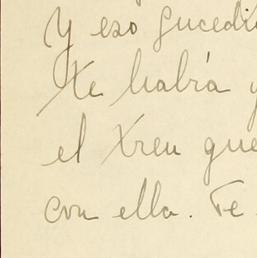 Y eso sucedi
Te habrá y
el tren que
con ella. Te